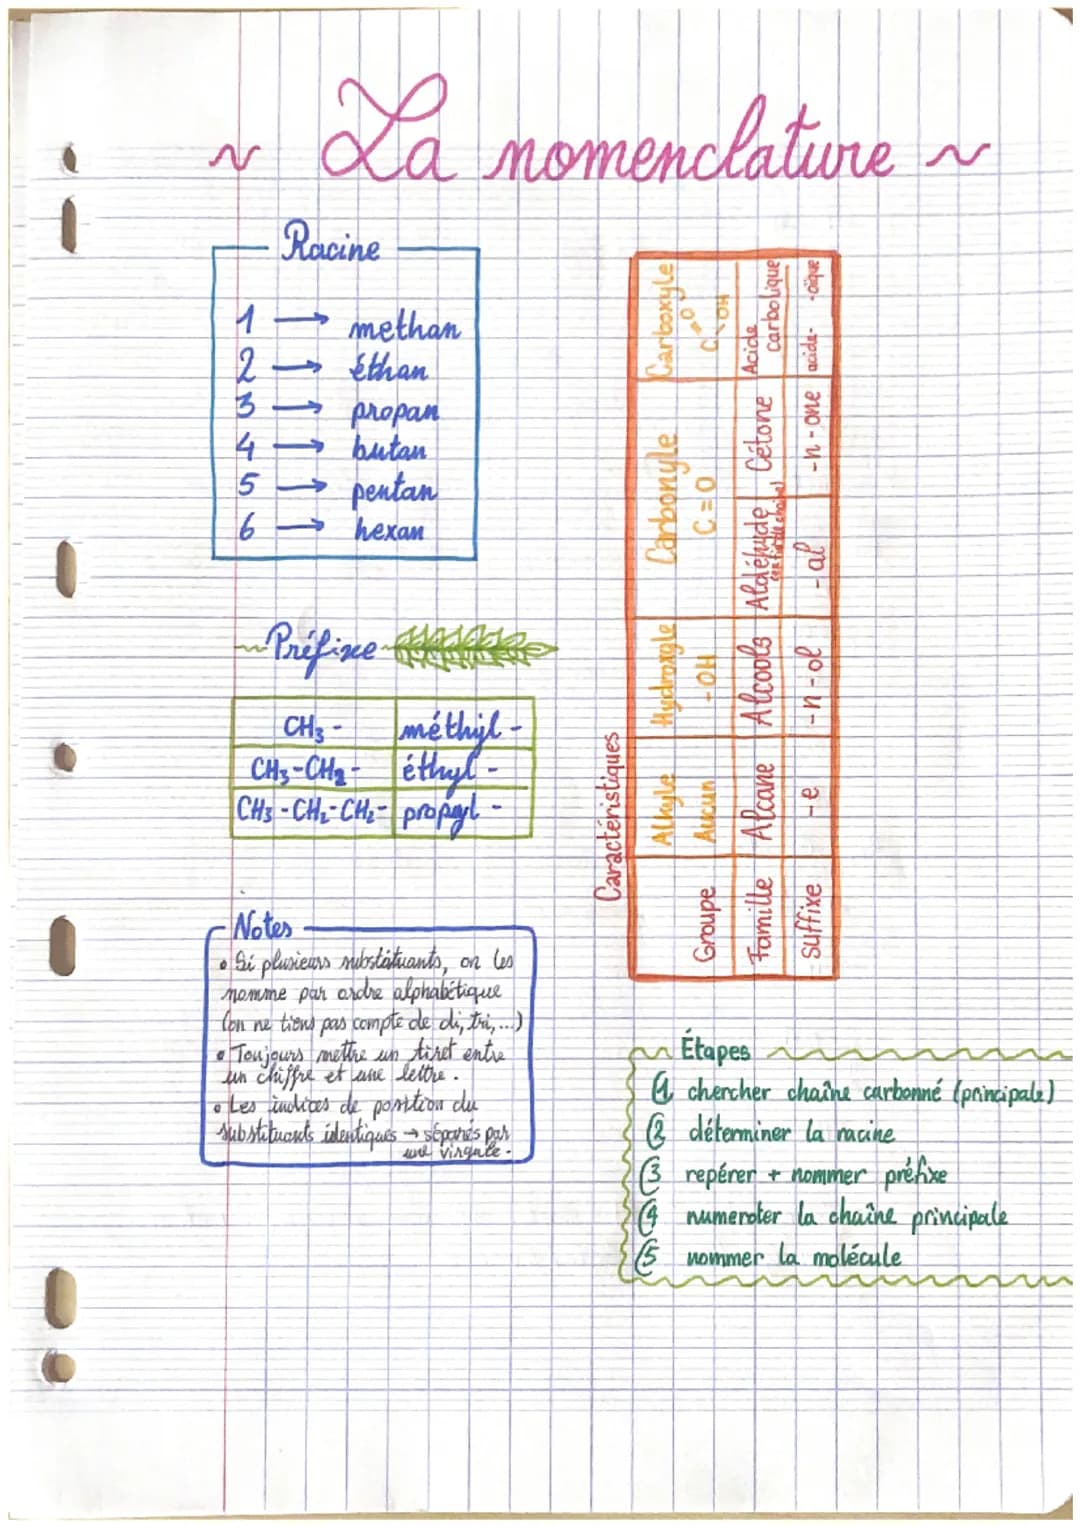 ~ La nomenclature ~
Racine
1 → methan
2 → éthan
3 → propan
4 → butan
5 → pentan
6 → hexan
Préfixe
CH3 - méthyl -
CH3-CH2- éthyl -
CH3-CH2-CH2- propyl -
Notes
• Si plusieurs substituants, on les
nomme par ordre alphabétique
(on ne tiens pas compte de di, tri,...)
• Toujours mettre un tiret entre
un chiffre et une lettre.
• Les indices de position du
substituants identiques → séparés par
une virgule.
Caractéristiques
Groupe Alkyle Hydroxyle Carbonyle Carboxyle
Aucun -OH C=O C=O -OH
Famille Alcane Alcools Aldéhyde Cétone Acide carbolique
(en fin de chaîne)
Suffixe -e -n-ol -al -n-one acide- -oïque
Étapes
1 chercher chaîne carbonné (principale)
2 déterminer la racine
3 repérer + nommer préfixe
4 numeroter la chaîne principale
5 nommer la molécule